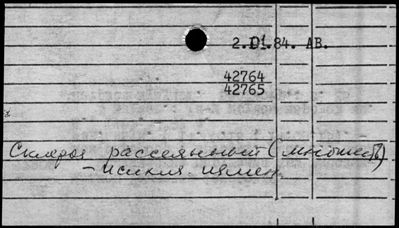 2.01.84. АВ.
42764
42765
Склероз рассеянный (множеств)
- психич. измен.